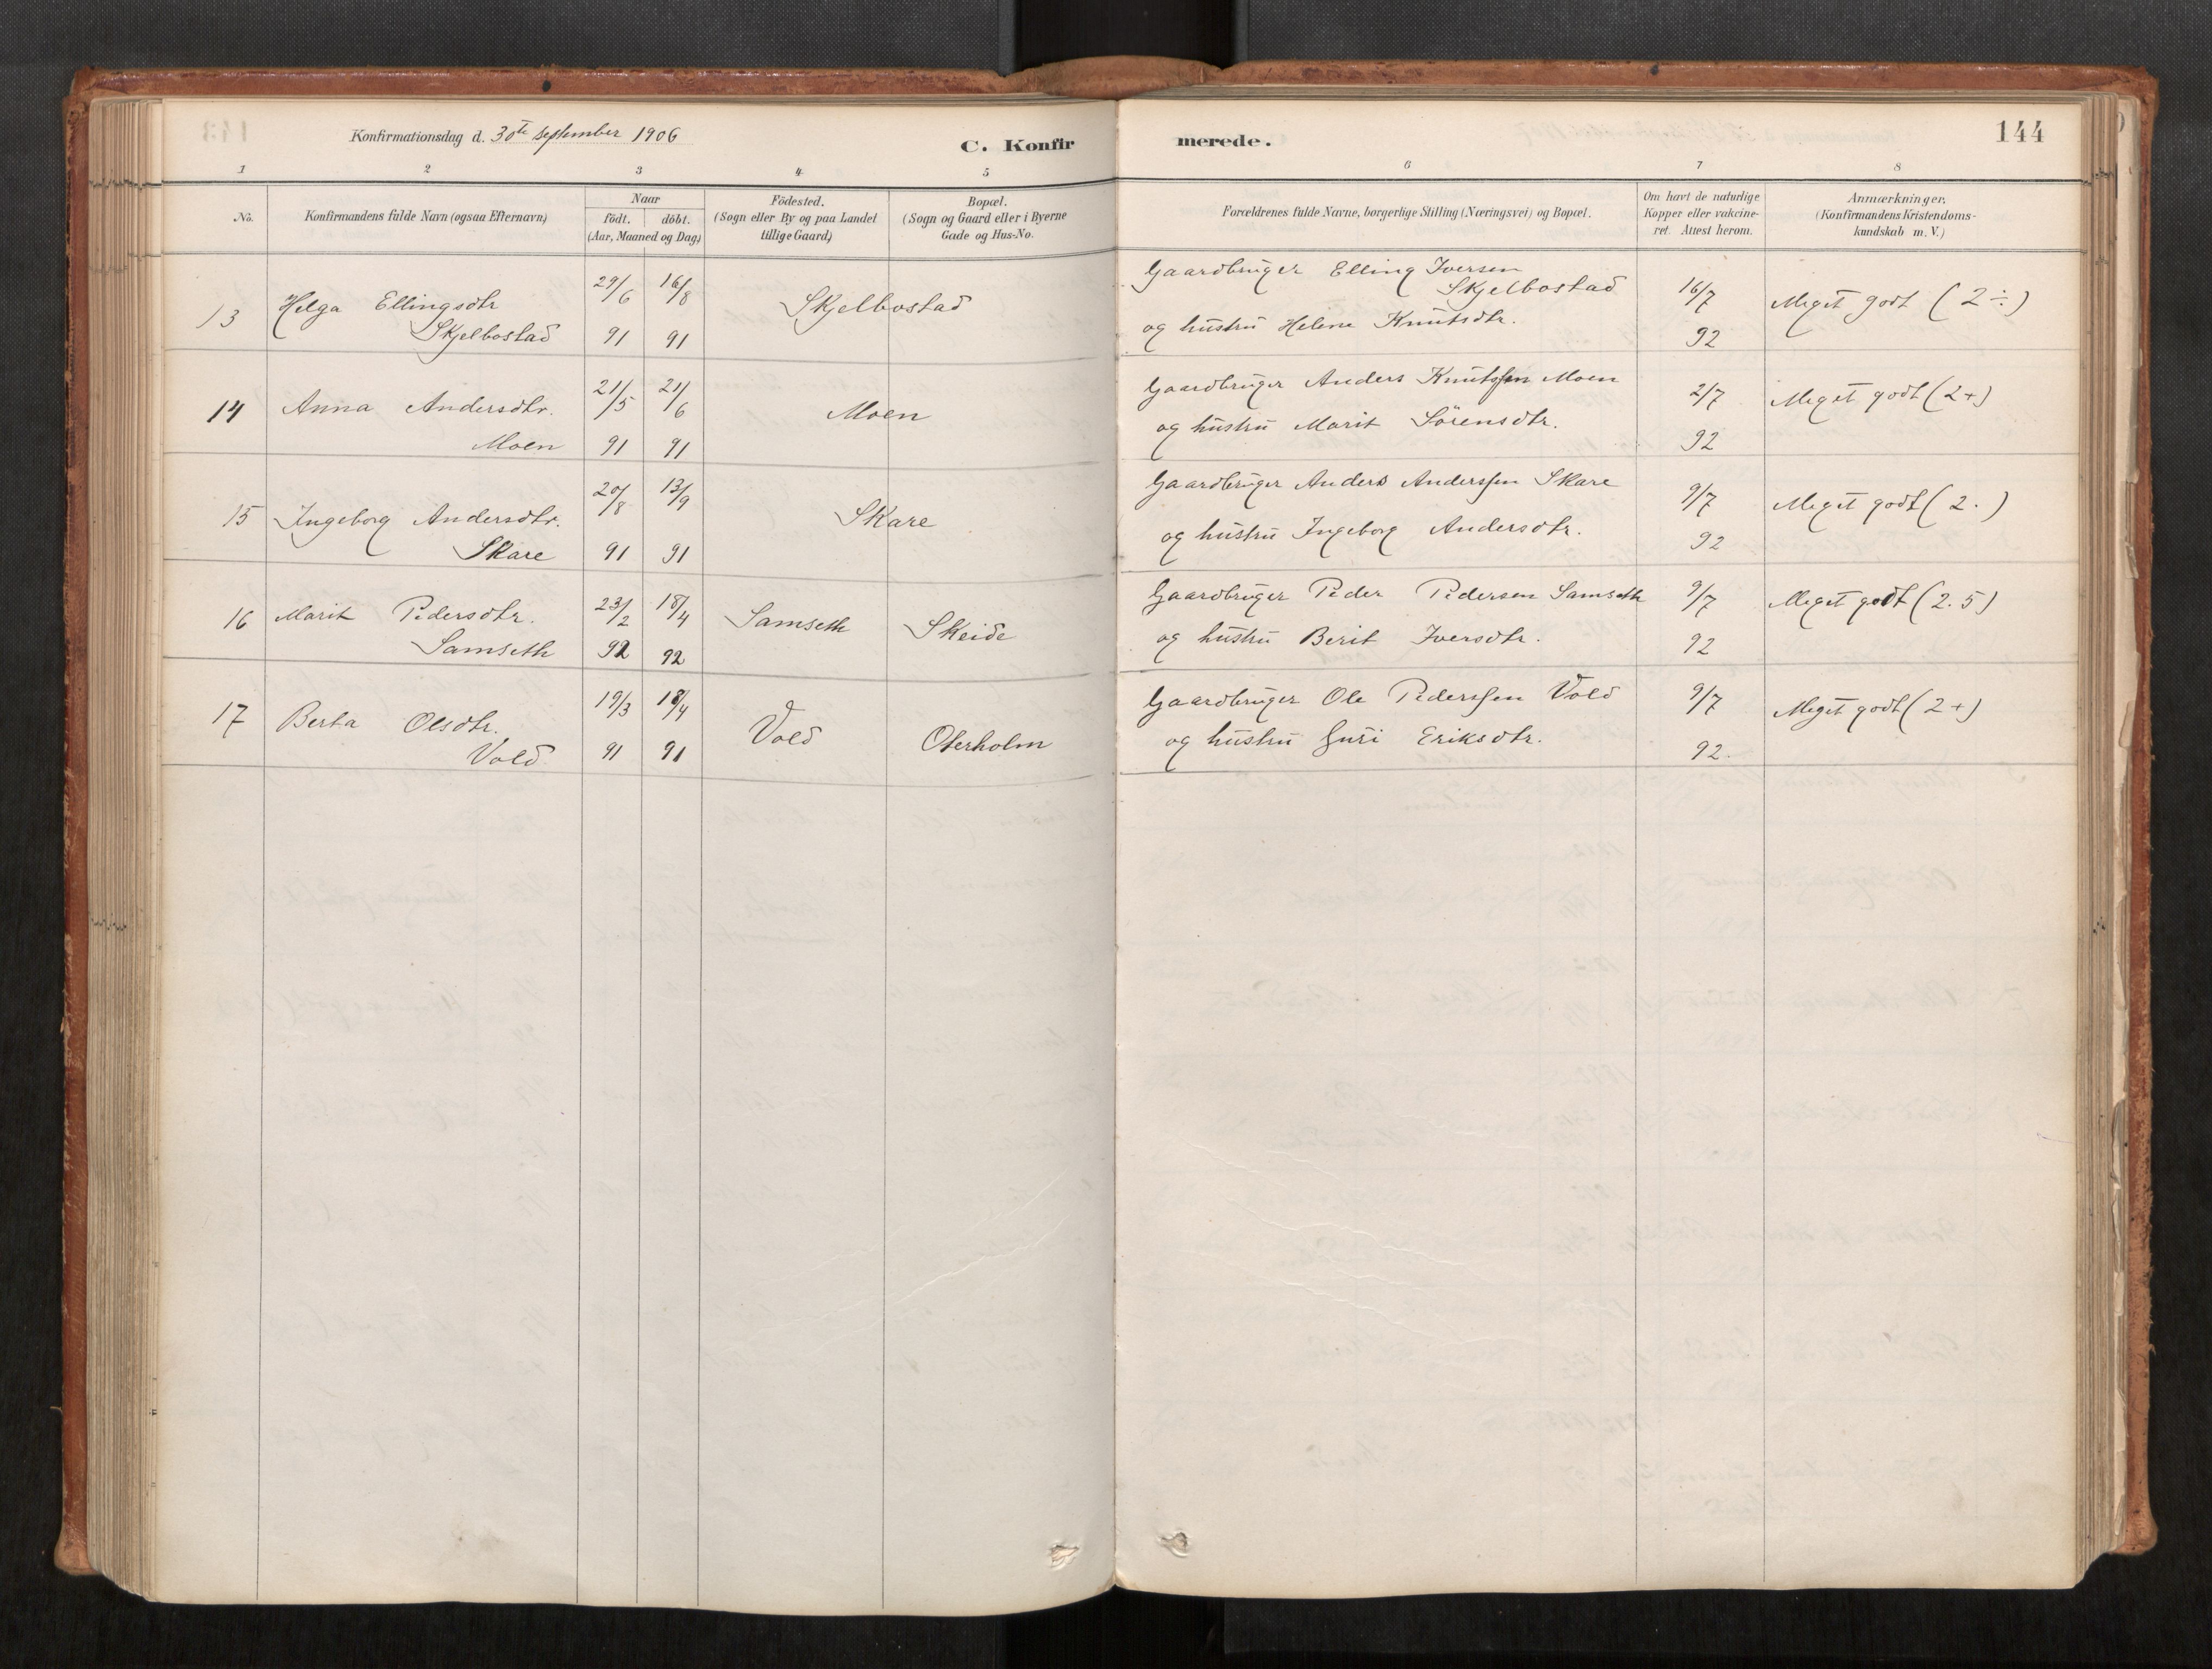 Konfirmationsdag d. 30te september 1906
C. Konfirmerede.
144
1 2 3 4 5 6 7 8
No.
Konfirmandens fulde Navn (ogsaa Efternavn)
Naar
födt. döbt.
(Aar, Maaned og Dag)
Födested.
(Sogn eller By og paa Landet
tillige Gaard)
Bopæl.
(Sogn og Gaard eller i Byerne
Gade og Hus-No.
Forældrenes fulde Navne, borgerlige Stilling (Næringsvei) og Bopæl.
Om havt de naturlige
Kopper eller vakcine-
ret. Attest herom.
Anmærkninger.
(Konfirmandens Kristendoms-
kundskab m. V.)
13 Helga Ellingsdtr 29/6 16/8 Skjelbostad Gaardbruger Elling Iversen 16/7 Meget godt (2 ÷)
Skjelbostad 91 91 Skjelbostad
og hustru Helene Knutsdtr. 92
14 Anna Andersdtr. 21/5 21/6 Moen Gaardbruger Anders Knutssen Moen 2/7 Meget godt (2+)
Moen 91 91 og hustru Marit Sörensdtr. 92
15 Ingeborg Andersdtr. 20/8 13/9 Skare Gaardbruger Anders Anderssen Skare 9/7 Meget godt (2.)
Skare 91 91 og hustru Ingeborg Andersdtr. 92
16 Marit Pedersdtr. 23/2 18/4 Samseth Skeide Gaardbruger Peder Pedersen Samseth 9/7 Meget godt (2.5)
Samseth 92 92 og hustru Berit Iversdtr. 92
17 Berta Olsdtr. 19/3 18/4 Vold Oterholm Gaardbruger Ole Pederssen Vold 9/7 Meget godt (2+)
Vold 91 91 og hustru Guri Eriksdtr. 92.